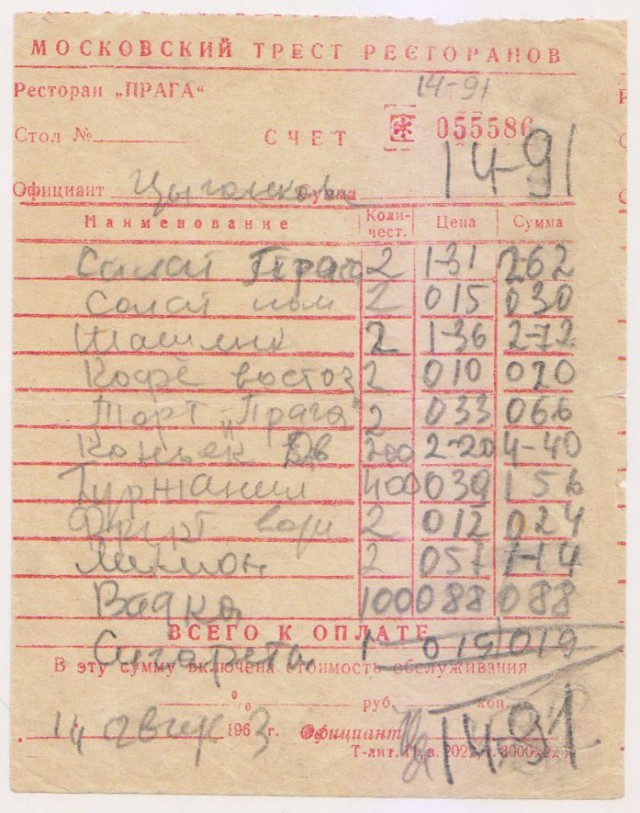 МОСКОВСКИЙ ТРЕСТ РЕСТОРАНОВ
Ресторан „ПРАГА“ 14-91
Стол № СЧЕТ 055586
Официант Сумма 14-91
Наименование Коли-чест. Цена Сумма
Салат Праг 2 1-31 2-62
Салат пом 2 015 030
Шашлык 2 1-36 2-72
Кофе восточ 2 010 020
Торт „Прага“ 2 033 066
Коньяк 200 2-20 4-40
Гурджаани 400 039 156
Фрукт воды 2 012 024
Лимон 2 057 1-14
Водка 100 088 088
ВСЕГО К ОПЛАТЕ
Сигареты 1 019 019
В эту сумму включена стоимость обслуживания
% руб. коп.
14 август 1963 г. Официант 14-91